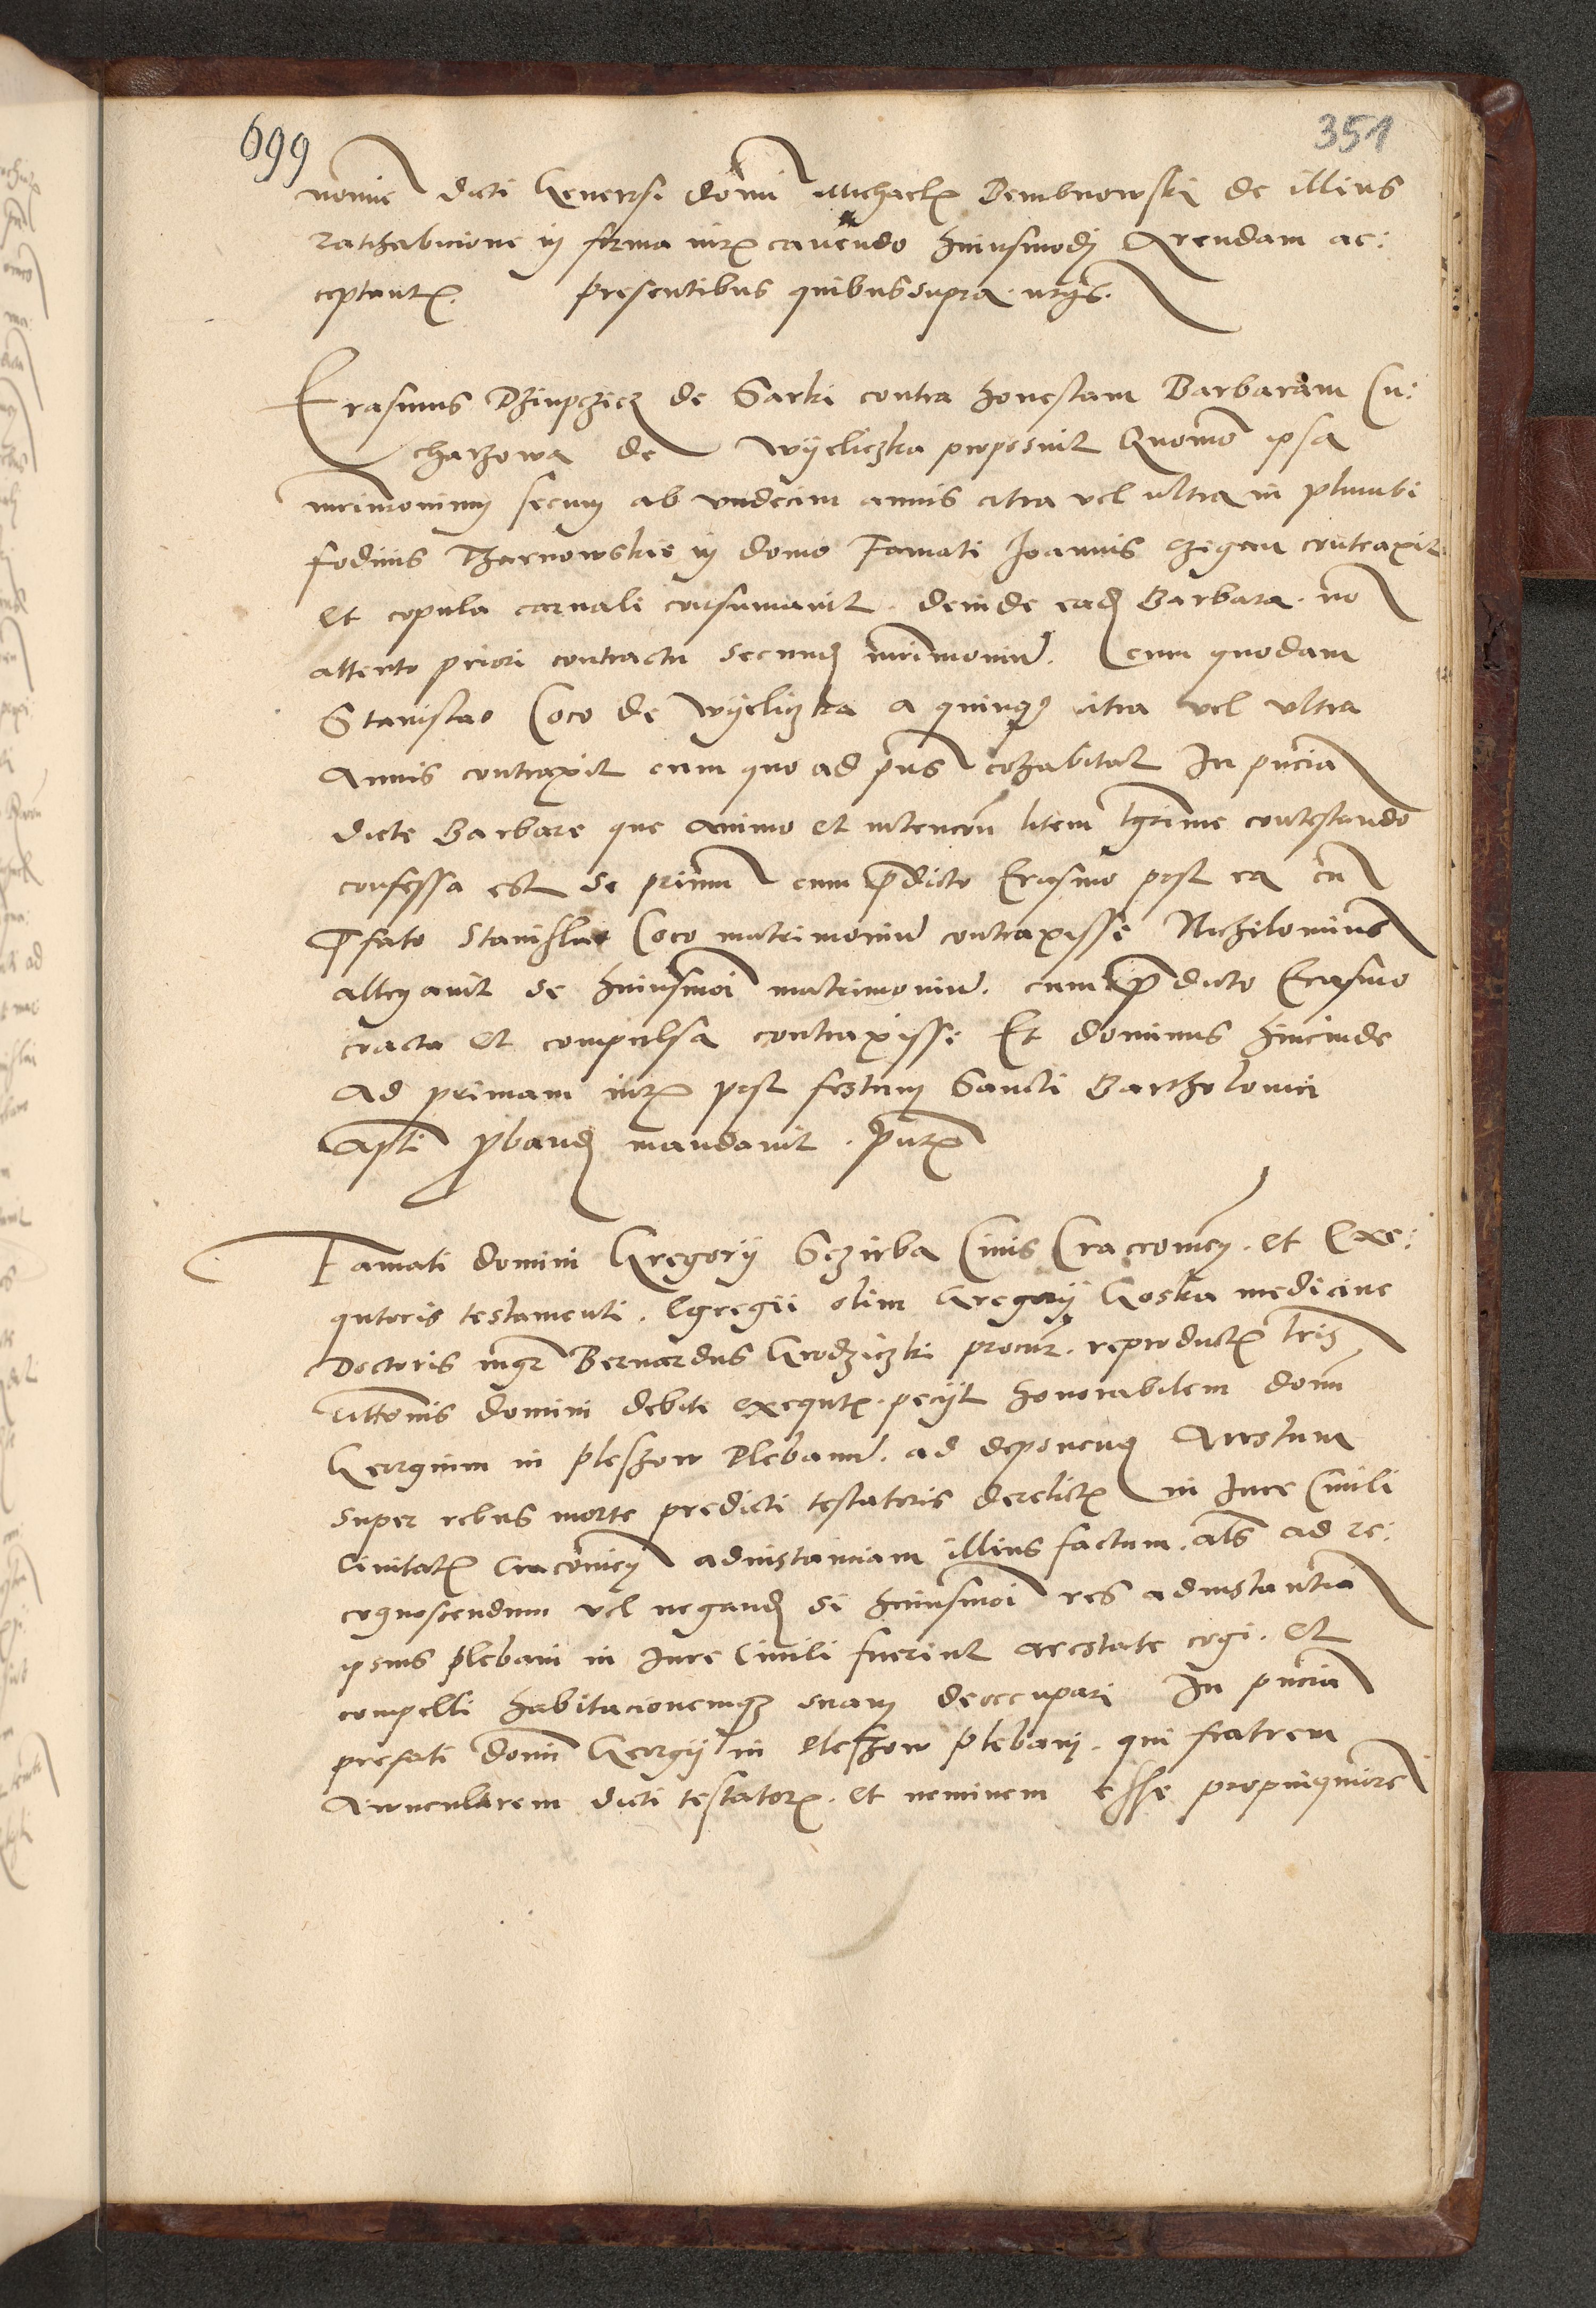 699
351
nomine dicti Generosi domi Michaelis Dembnowski de illius
rathabicione in forma iuris cavendo huiusmodi Arendam ac:
ceptantis. presentibus quibus supra
Erasmus de Sarki contra honestam Barbaram Cu:
charzowa de Wyeliczka proposuit Quomo ipsa
mrimonium secum ab undecim annis citra vel ultra in plumbi
fodinis Tharnowskie in domo Famati Joannis Czigan contraxit
et copula carnali consumavit. deinde eadem Barbara. no
attento priori contractu secundum mrimoniu. cum quodam
Stanislao Coco de Wyeliczka a quinque citra vel ultra
Annis contraxit cum quo ad pns cohabitat In pncia
dicte Barbare que animo et intencion litem lgitime contestando
confessa est se primum cum predicto Erasmo post ea cu
prefato Stanislao Coco matrimoniu contraxisse Nichilominus
allegavit se huiusmoi matrimoniu. cum predicto Erasmo
coacta et compulsa contraxisse Et dominus hincinde
ad primam iuris post festum Sancti Bartholomei
Apli probandum mandavit. pntibus
Famati domini Gregory Sczirba Civis Cracovien. et Exe:
qutoris testamenti. Egregii olim Gregory Koska medicine
Doctoris mgr Bernardus Grodziczki procur. reproductis lris
Citationis domini debite exequtis. peciit honorabilem domi
Georgium in Pleschow Plebanu. ad deponendum Arestum
super rebus morte predicti testatoris derelictis in Jure Civili
Civitatis Cracovien ad instanciam illius factum. als ad re:
cognoscendum vel negandum si huiusmoi res ad instantia
ipsius plebani in Jure Civili fuerint arestate cogi. et
compelli habitacionemque suam deoccupari In pncia
prefati domi Georgy in Pleschow plebani. qui fratrem
Avuncularem dicti testatoris. et neminem esse propinquiore